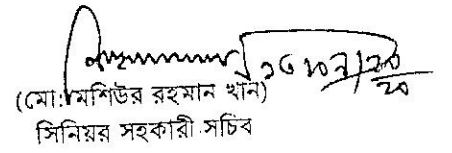 (মো: মশিউর রহমান খান)
সিনিয়র সহকারী সচিব